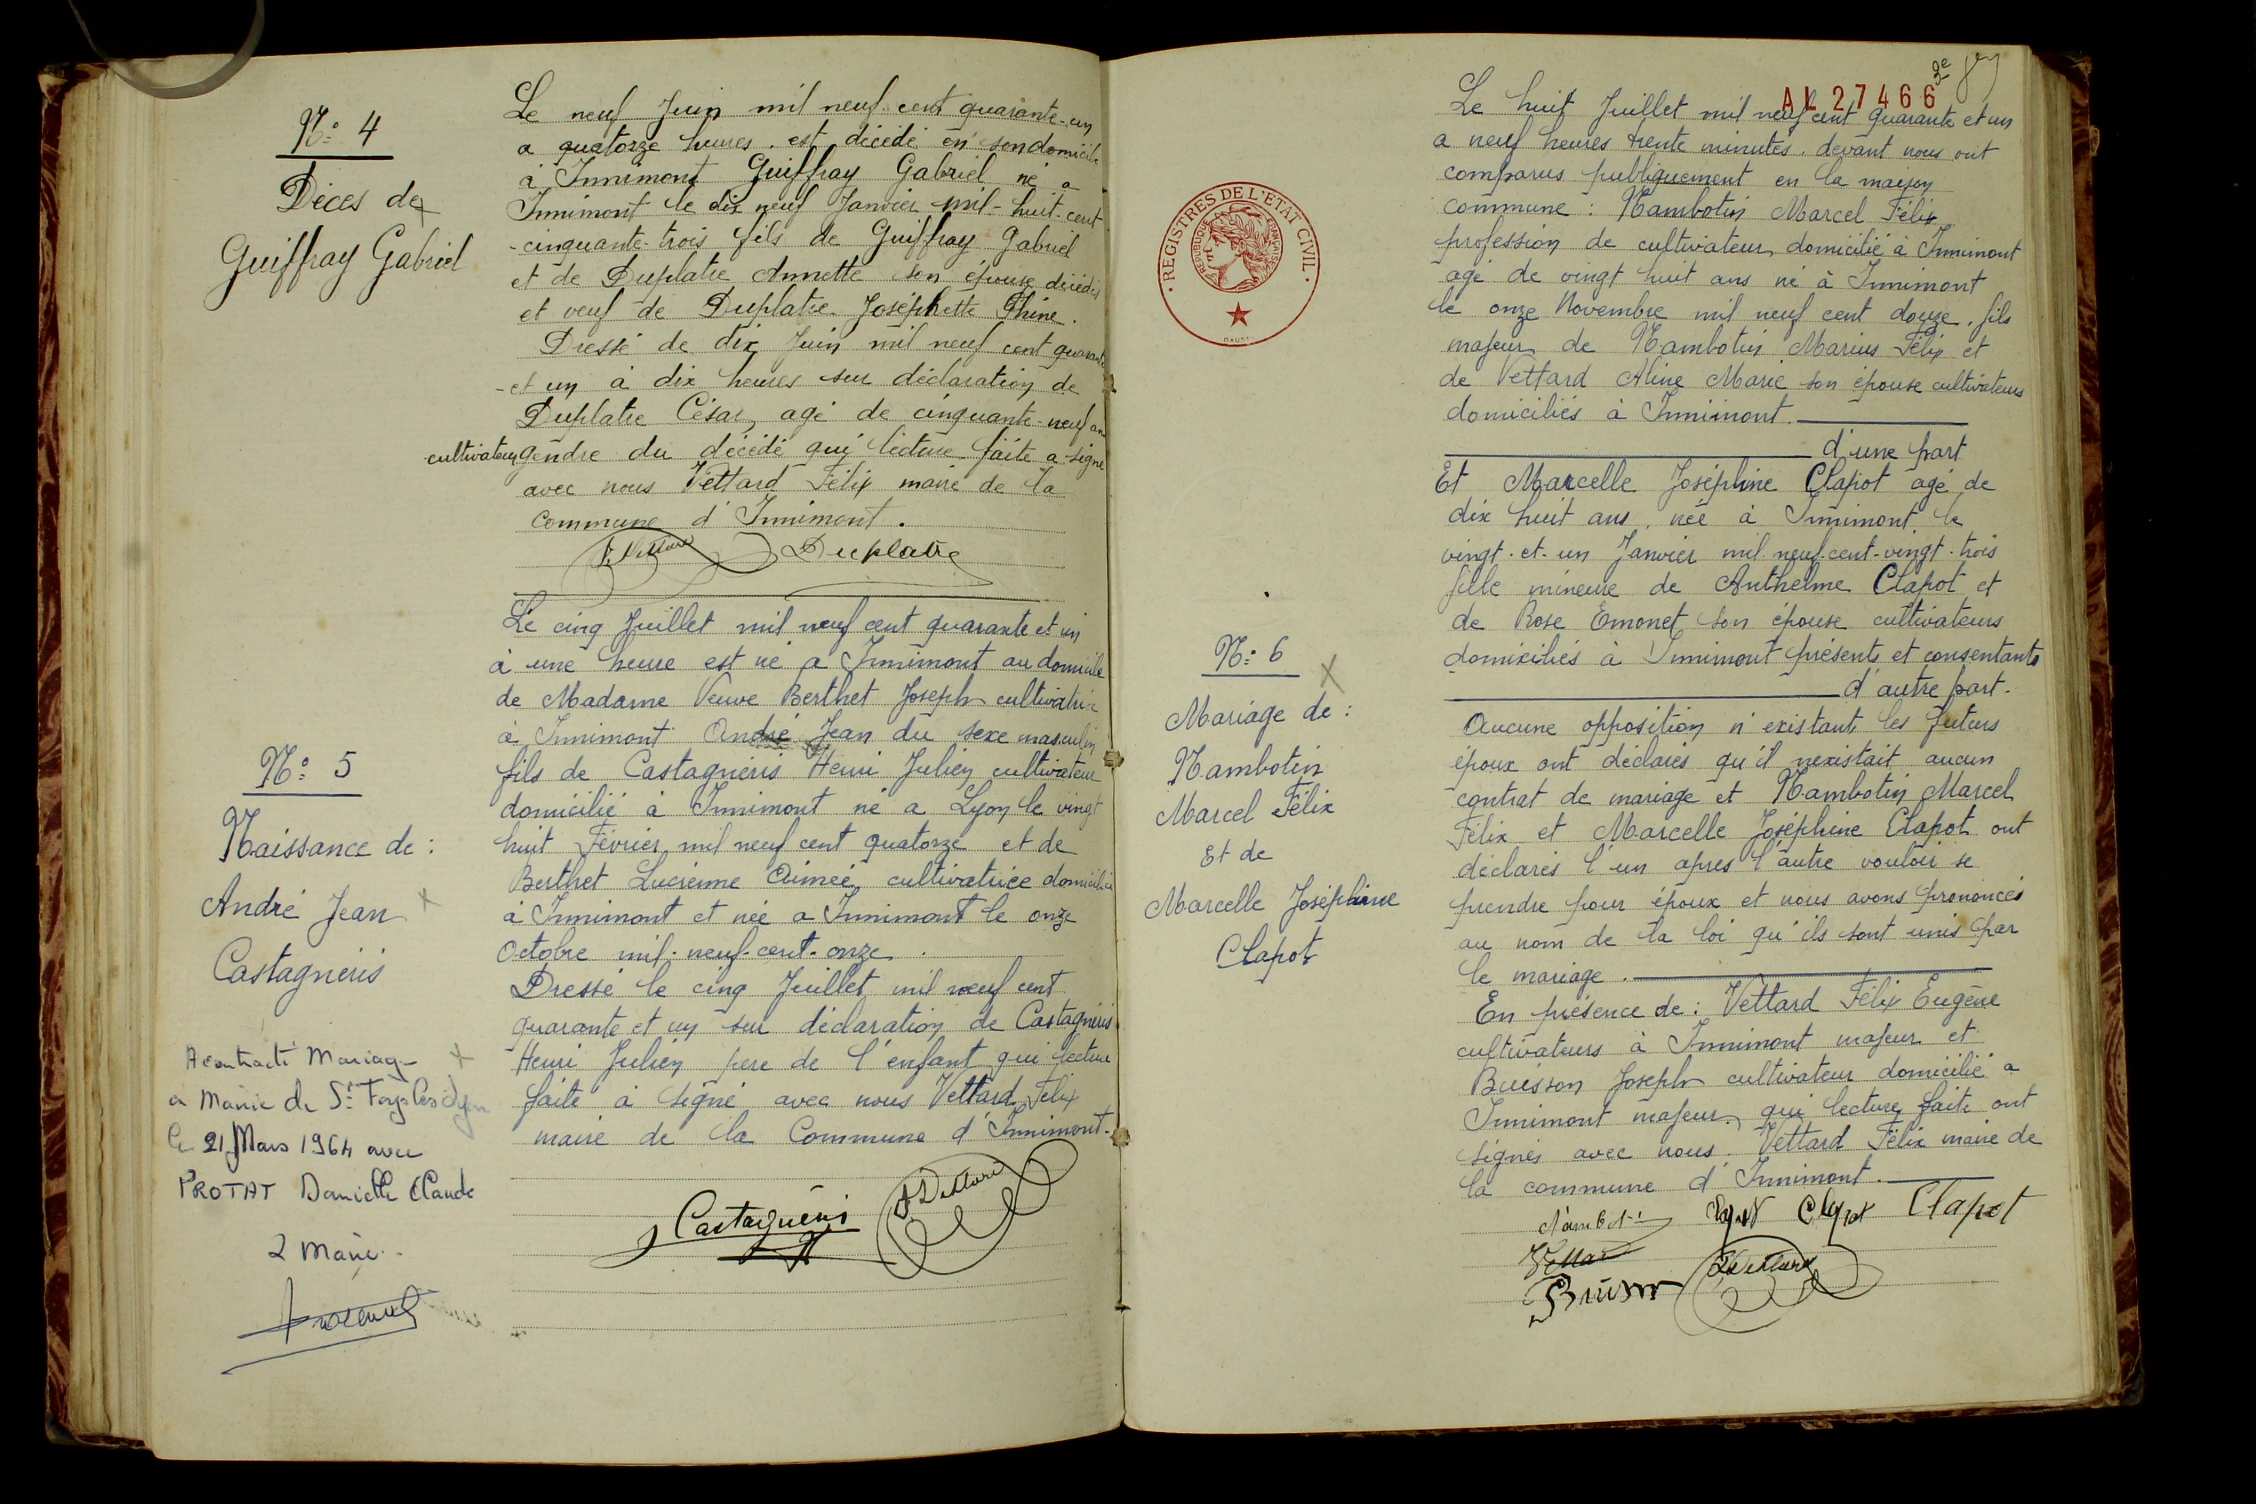 N° 4
Décès de
Guiffray Gabriel
Le neuf Juin mil neuf cent quarante-un
a quatorze heures est décédé en son domicile
à Innimont Guiffray Gabriel né a
Innimont le dix neuf Janvier mil-huit-cent
-cinquante-trois fils de Guiffray Gabriel
et de Duplatre Annette son épouse décédés
et veuf de Duplatre Joséphette Phine.
Dressé de dix Juin mil neuf cent quarante
-et un à dix heures sur déclaration de
Duplatre César, agé de cinquante-neuf ans
cultivateur gendre du décédé qui lecture faite a signé
avec nous Vettard Félix maire de la
commune d'Innimont.
F. Vettard Duplatre
N° 5
Naissance de :
André Jean
Castagnéris
Le cinq Juillet mil neuf cent quarante et un
à une heure est né a Innimont au domicile
de Madame Veuve Berthet Joseph cultivatrice
à Innimont André Jean du sexe masculin
fils de Castagnéris Henri Julien cultivateur
domicilié à Innimont né a Lyon le vingt
huit Février mil neuf cent quatorze et de
Berthet Lucienne Aimée cultivatrice domiciliée
à Innimont et née a Innimont le onze
Octobre mil-neuf-cent-onze.
Dressé le cinq Juillet mil neuf cent
quarante et un sur déclaration de Castagnéris
Henri Julien père de l'enfant qui lecture
faite à signé avec nous Vettard Félix
maire de la Commune d'Innimont.
Castagnéris F. Vettard
A contracté Mariage
a Mairie de Ste Foy les Lyon
le 21 Mars 1964 avec
PROTAT Danielle Claude
Maire
AL27466
3e
REGISTRES DE L'ETAT CIVIL
REPUBLIQUE FRANÇAISE
N° 6
Mariage de :
Nambotin
Marcel Félix
Et de
Marcelle Joséphine
Clapot
Le huit Juillet mil neuf cent quarante et un
a neuf heures trente minutes. devant nous ont
comparus publiquement en la maison
commune : Nambotin Marcel Félix
profession de cultivateur domicilié à Innimont
agé de vingt huit ans né à Innimont
le onze Novembre mil neuf cent douze, fils
majeur de Nambotin Marius Félix et
de Vettard Aline Marie son épouse cultivateurs
domiciliés à Innimont.
d'une part
Et Marcelle Joséphine Clapot agé de
dix huit ans, née à Innimont le
vingt-et-un Janvier mil-neuf-cent-vingt-trois
fille mineure de Anthelme Clapot et
de Rose Emonet son épouse cultivateurs
domiciliés à Innimont présents et consentants
d'autre part.
Aucune opposition n'existant, les futurs
époux ont déclarés qu'il nexistait aucun
contrat de mariage et Nambotin Marcel
Félix et Marcelle Joséphine Clapot ont
déclarés l'un après l'autre vouloir se
prendre pour époux et nous avons prononcés
au nom de la loi qu'ils sont unis par
le mariage.
En présence de : Vettard Félix Eugène
cultivateurs à Innimont majeur et
Buisson Joseph cultivateur domicilié a
Innimont majeur, qui lecture faite ont
signés avec nous. Vettard Félix maire de
la commune d'Innimont.
Nambotin Clapot Clapot Clapot
Vettard
Buisson F. Vettard